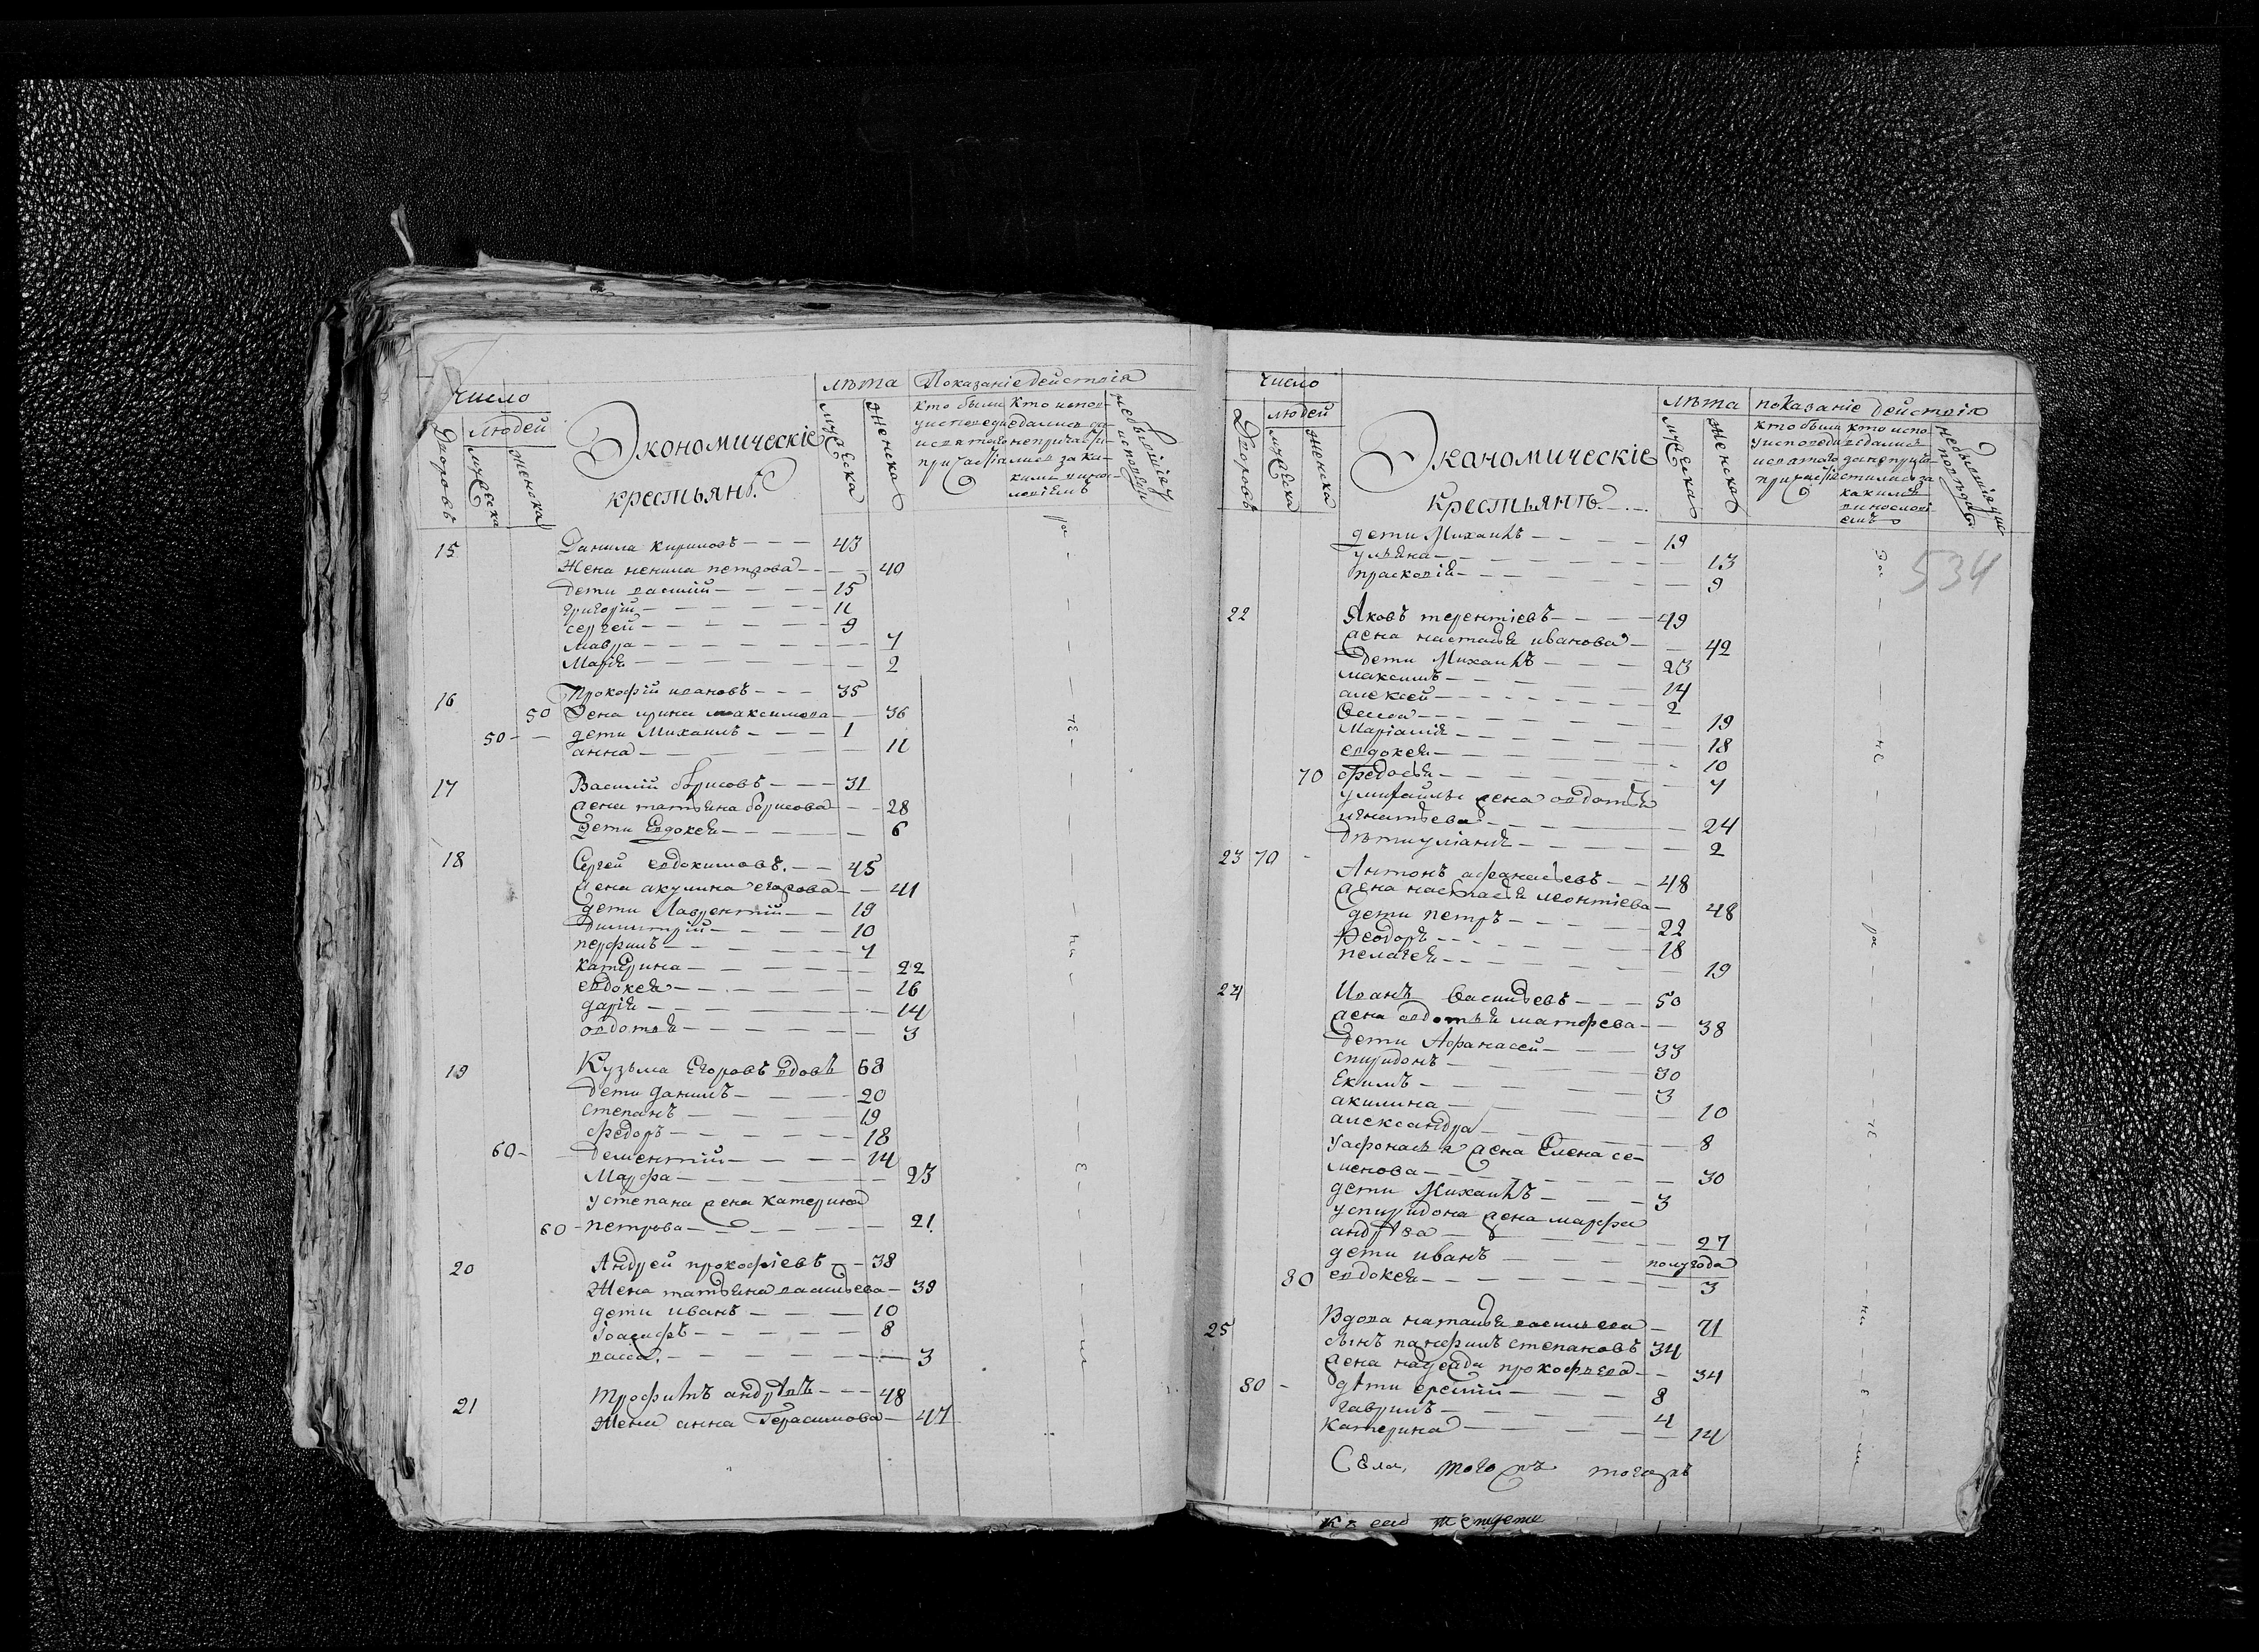 Число
Людей
Дворовъ
мужеска
женска
Экономическіе
крестьянѣ
лѣта
мужеска
женска
Показаніе действія
кто были
уисповеди
исвятаго
причастія
кто испов-
едались да
непричасти-
лись за ка-
кимъ вино-
мъ
небывшія у
исповеди
15 Данила кириловъ 43
Жена ненила петрова 40
дети василій 15
григорій 11
сергей 9
мавра 7
марія 2
16 Прокофій ивановъ 35
50 Жена ирина максимова 36
50 дети Михаилъ 1
анна 11
17 Василій борисовъ 31
жена татьяна борисова 28
дети Евдокея 6
18 Сергей евдокимовъ 45
жена акулина егорова 41
дети Лаврентій 19
димитрій 10
перфилъ 7
катерина 22
евдокея 16
дарія 14
овдотья 3
19 Кузьма Егоровъ вдовъ 68
дети данилъ 20
степанъ 19
федоръ 18
60 дементій 14
Марфа 23
устепана жена катерина
60 петрова 21
20 Андрей прокофіевъ 38
Жена татьяна васильева 39
дети иванъ 10
Іоасифъ 8
васса 3
21 трофимъ андреевъ 48
Жена анна Герасимова 47
число
людей
Дворовъ
мужеска
женска
Экономическіе
крестьянѣ
лѣта
мужеска
женска
показаніе действія
кто были
уисповеди
исвятаго
причастія
кто испо-
ведались
за
какимъ
534
дети Михаилъ 19
ульяна 13
прасковія 9
22 Яковъ терентіевъ 49
жена настасья иванова 42
дети Михаилъ 23
максимъ 14
алексей 2
19
Маріамія 18
евдокея 10
70 федосья 7
умихайлы жена овдотья
игнатьева 24
дѣти уліаніа 2
23 70 Антонъ афанасьевъ 48
жена настасья леонтіева 48
дети петръ 22
Феодоръ 18
пелагея 19
24 Иванъ Васильевъ 50
жена овдотья матфеева 38
дети Афанасей 33
спиридонъ 30
Екимъ 3
акилина 10
александра 8
уафонасья жена Елена се-
менова 30
дети Михаилъ 3
успиридона жена марфа
андрева 27
дети иванъ полугода
80 евдокея 3
25 Вдова наталья васильева 71
сынъ панфилъ степановъ 34
жена надежда прокофьева 34
80 дѣти еремій 8
гаврилъ 4
Катерина 14